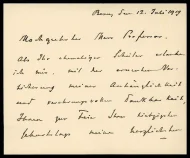 Bonn, den 12. Juli 1919
Hochgeehrter Herr Professor.
Als Ihr ehemaliger Schüler erlaube
ich mir, mit der erneuten Ver-
sicherung meiner Anhänglichkeit
und Dankbarkeit,
Ihnen zur Feier Ihres
Geburtstags meine herzlichsten